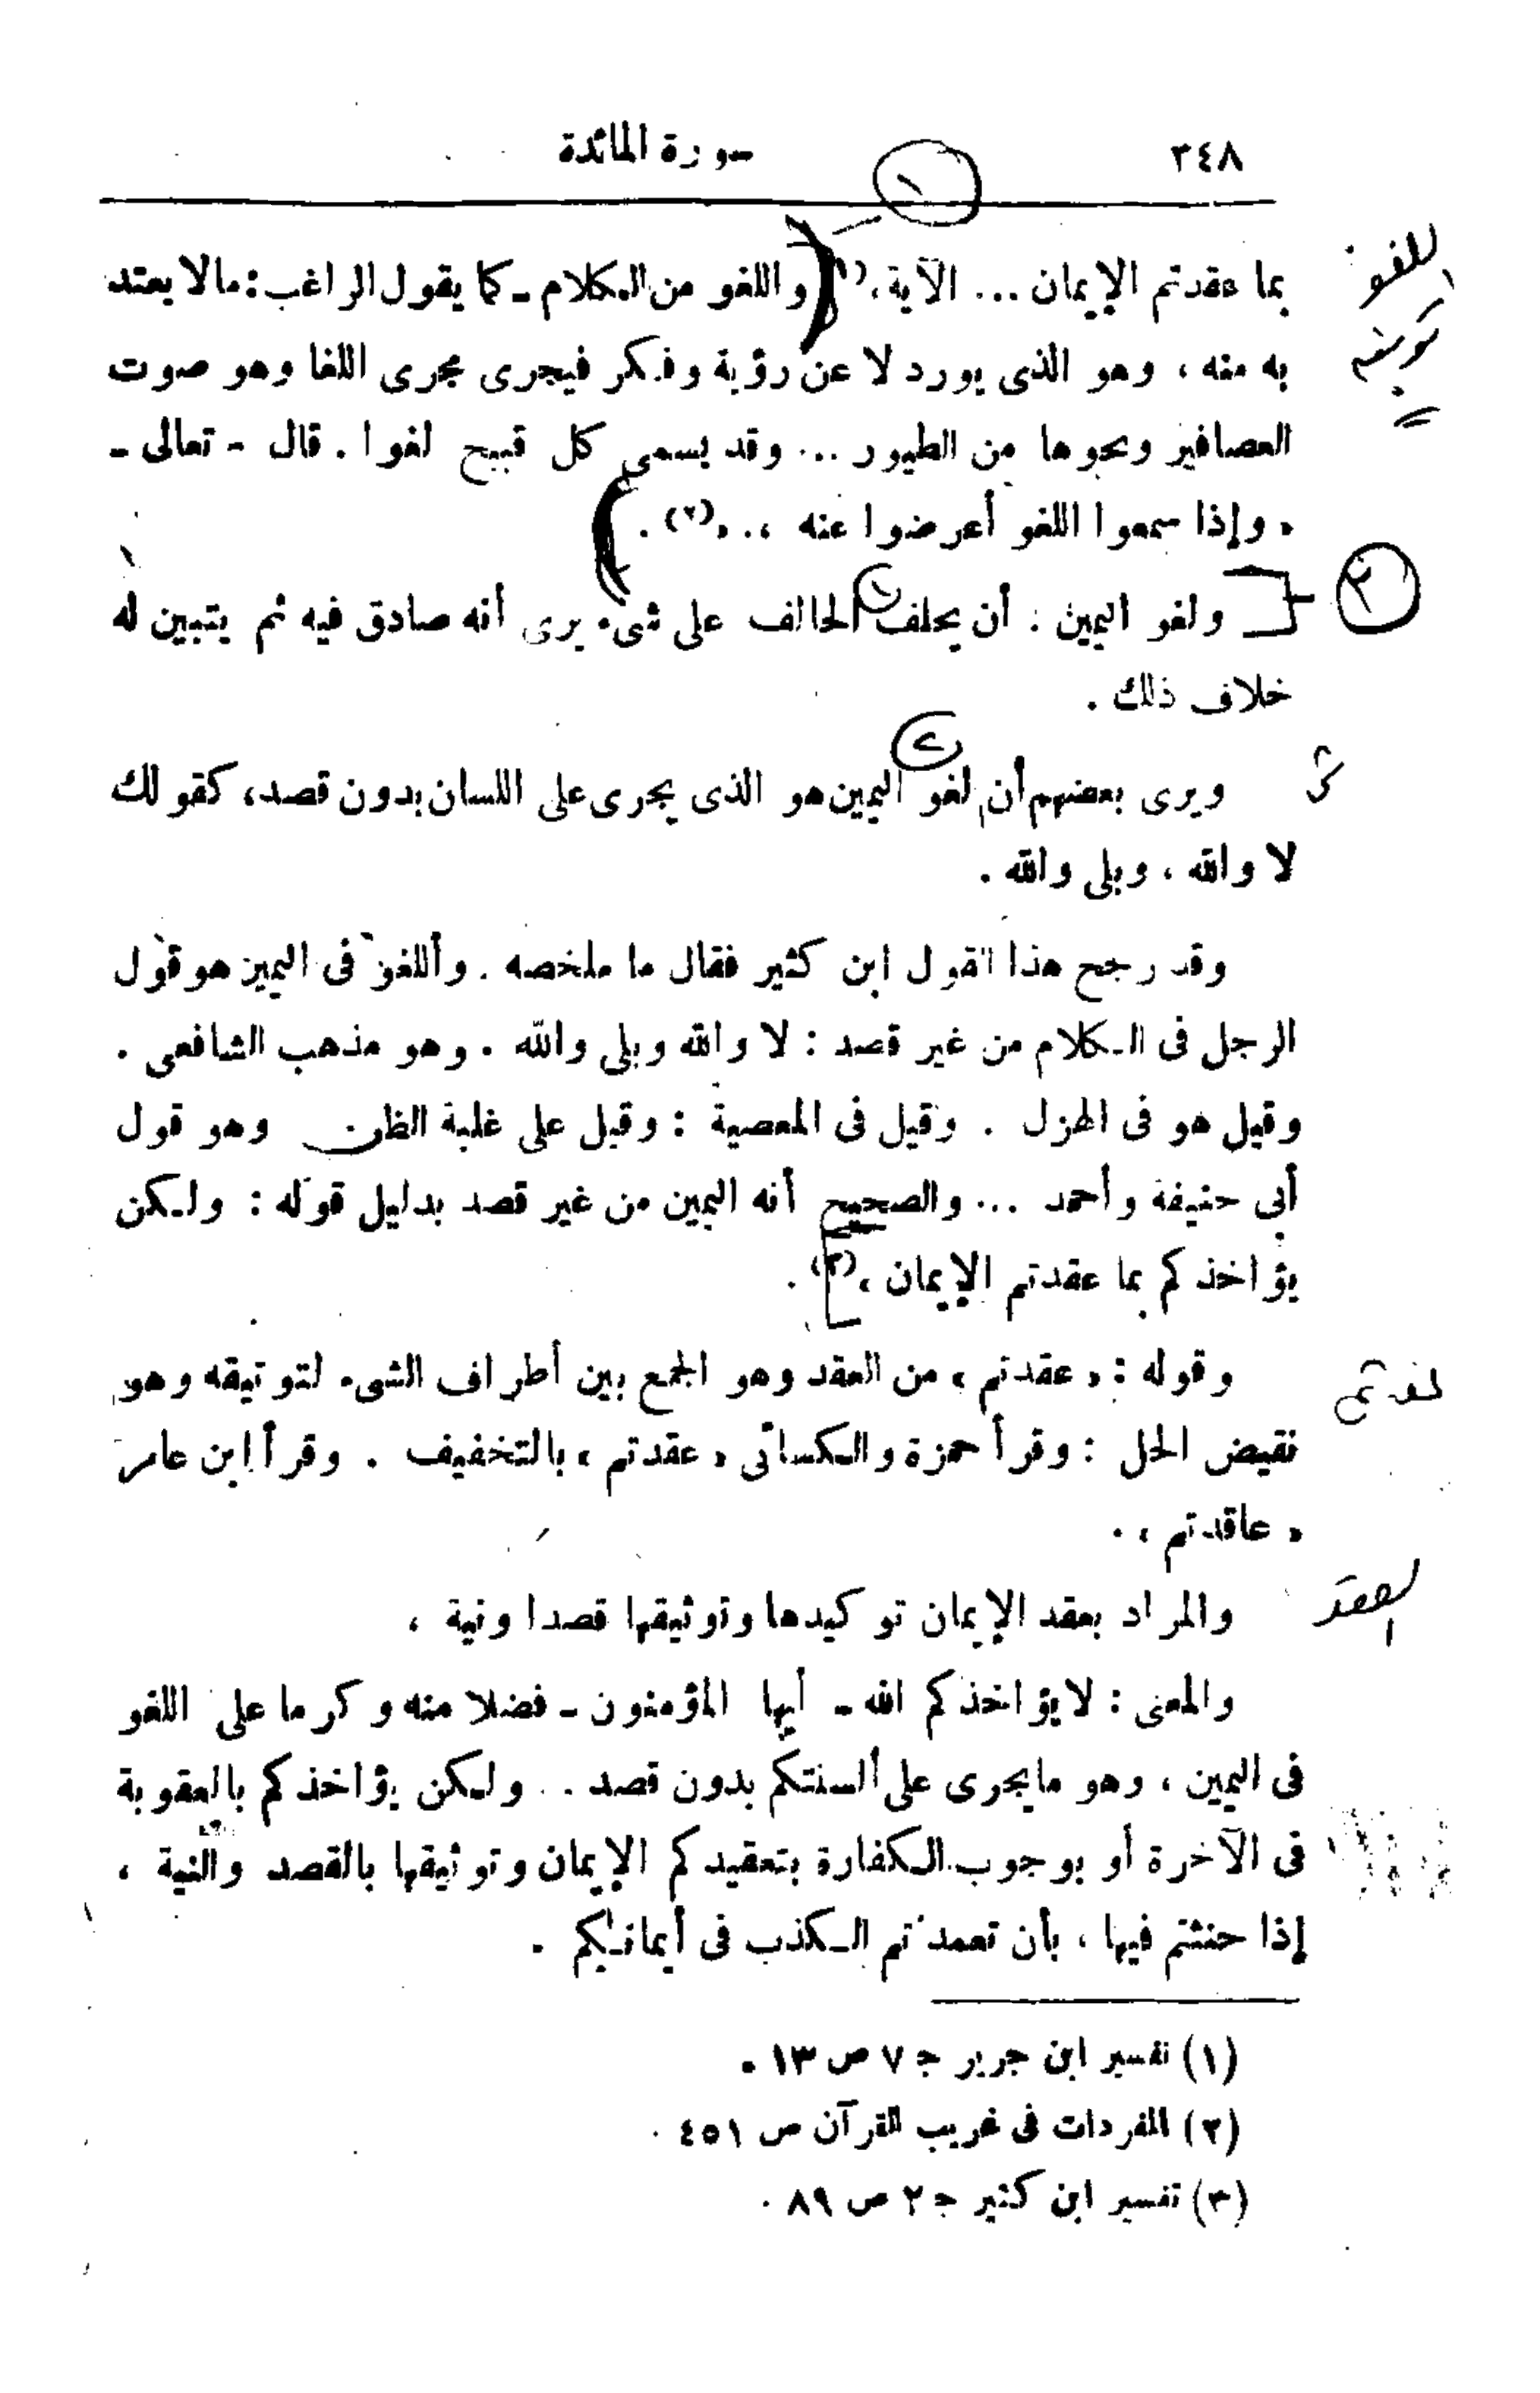 ٣٤٨
سورة المائدة
بما عقدتم الإيمان ... الآية،(١) واللغو من الكلام - كما يقول الراغب: مالا يعتد
به منه ، وهو الذى يورد لا عن رؤية وفكر فيجرى مجرى اللغا وهو صوت
العصافير ونحوها من الطيور ... وقد يسمى كل قبيح لغوا . قال - تعالى -
« وإذا سمعوا اللغو أعرضوا عنه ، .. »(٢) .
ولغو اليمين : أن يحلف الحالف على شىء يرى أنه صادق فيه ثم يتبين له
خلاف ذلك .
ويرى بعضهم أن لغو اليمين هو الذى يجرى على اللسان بدون قصد، كقولك
لا والله ، وبلى والله .
وقد رجح هذا القول ابن كثير فقال ما ملخصه . واللغو فى اليمين هو قول
الرجل فى الكلام من غير قصد : لا والله وبلى والله . وهو مذهب الشافعى .
وقيل هو فى الهزل . وقيل فى المعصية : وقيل على غلبة الظن وهو قول
أبى حنيفة وأحمد ... والصحيح أنه اليمين من غير قصد بدليل قوله : ولكن
يؤاخذكم بما عقدتم الإيمان ،(٣) .
وقوله : « عقدتم » من العقد وهو الجمع بين أطراف الشىء لتوثيقه وهو
نقيض الحل : وقرأ حمزة والكسائى « عقدتم » بالتخفيف . وقرأ ابن عامر
« عاقدتم » .
والمراد بعقد الإيمان توكيدها وتوثيقها قصدا ونية ،
والمعنى : لا يؤاخذكم الله - أيها المؤمنون - فضلا منه وكرما على اللغو
فى اليمين ، وهو ما يجرى على ألسنتكم بدون قصد .. ولكن يؤاخذكم بالعقوبة
فى الآخرة أو بوجوب الكفارة بتعقيدكم الإيمان وتوثيقها بالقصد والنية ،
إذا حنثتم فيها ، بأن تعمدتم الكذب فى أيمانكم .
(١) تفسير ابن جرير ج ٧ ص ١٣ .
(٢) المفردات فى غريب القرآن ص ٤٥١ .
(٣) تفسير ابن كثير ج ٢ ص ٨٩ .
١
اللغو
٢
١
٢
العقد